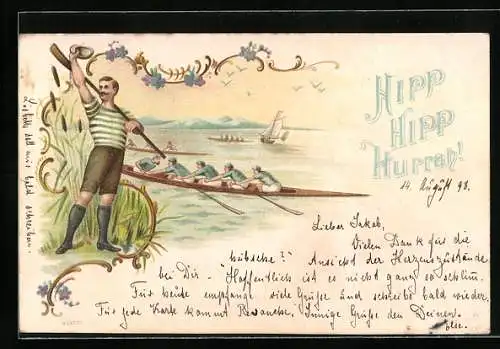 HIPP
HIPP
Hurrah!
14. August 98.
Lieber Jakob,
Vielen Dank für die
hübsche?" Ansicht der Herzenszustände
bei Dir - Hoffentlich ist es nicht ganz so schlim.
Für heute empfange viele Grüße und schreibe bald wieder,
Für jede Karte kommt Revanche. Innige Grüße den Deinen
soll mir bald schreiben.